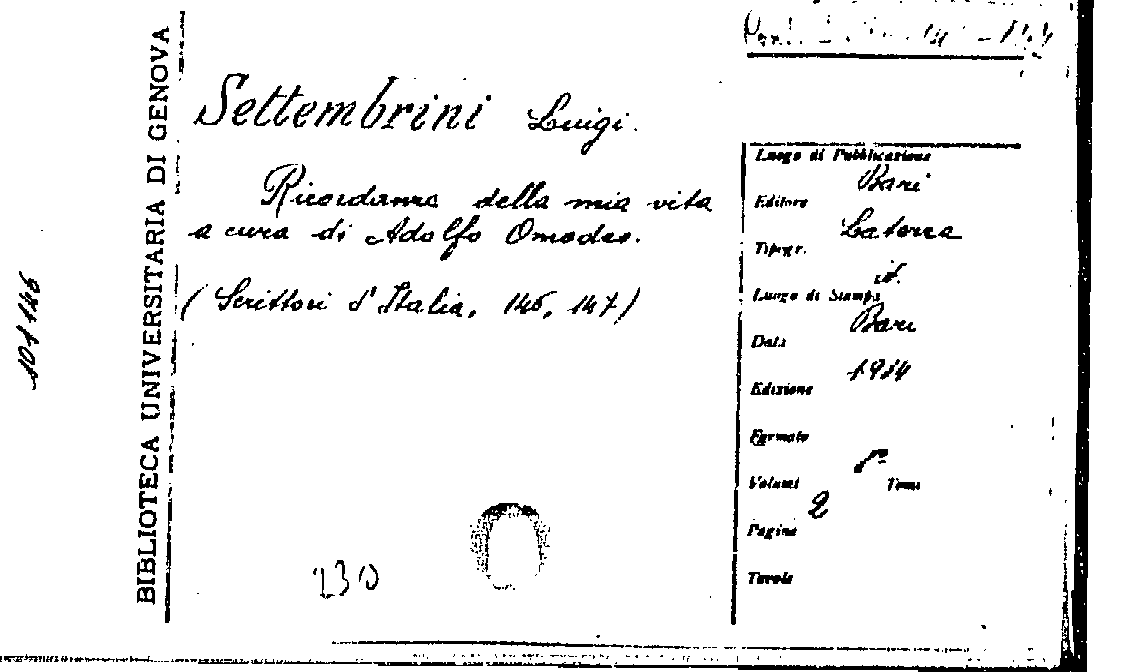 BIBLIOTECA UNIVERSITARIA DI GENOVA
101146
Settembrini Luigi.
Ricordanze della mia vita
a cura di Adolfo Omodeo.
(Scrittori d'Italia, 146, 147)
230
Luogo di Pubblicazione
Bari
Editore
Laterza
Tipogr.
id.
Luogo di Stampa
Bari
Data
1934
Edizione
Formato
8°
Volumi Tomi
2
Pagine
Tavole